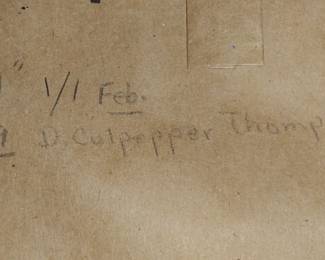 1/1 Feb.
D. Culpepper Thomp